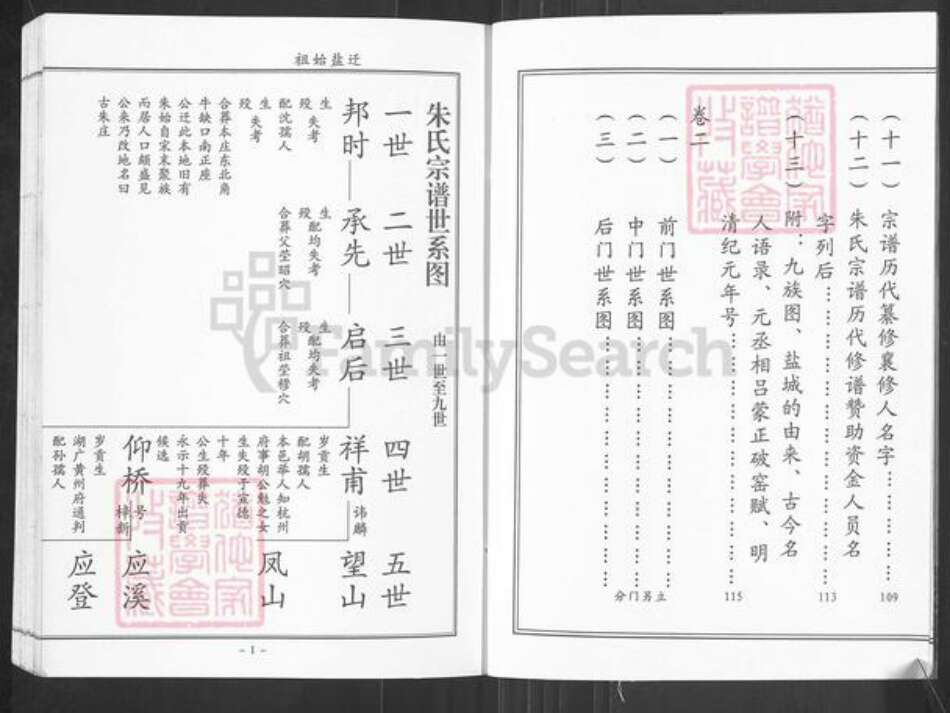 (十一) 宗谱历代纂修襄修人名字……………109
(十二) 朱氏宗谱历代修谱赞助资金人员名
字列后……………113
(十三) 附：九族图、盐城的由来、古今名
人语录、元丞相吕蒙正破窑赋、明
清纪元年号……………115
卷二
(一) 前门世系图……………
(二) 中门世系图……………
(三) 后门世系图……………
分门另立
祖始盐迁
朱氏宗谱世系图 由一世至九世
一世 二世 三世 四世 五世
邦时 承先 启后 祥甫 讳麟 望山
生
殁 失考
配沈孺人
生
殁 失考
合葬本庄东北角
牛缺口南正座
公迁此本地旧有
朱始自宋末聚族
而居人口颇盛见
公来乃改地名曰
古朱庄
生
殁 配均失考
合葬父茔昭穴
生
殁 配均失考
合葬祖茔穆穴
岁贡生
配胡孺人
本邑举人知杭州
府事胡公魁之女
生失殁于宣德
十年
公生殁葬失
永示十九年出贡
候选
凤山
仰桥 号梓新 应溪
岁贡生
湖广黄州府通判
配孙孺人
应登
- 1 -
FamilySearch